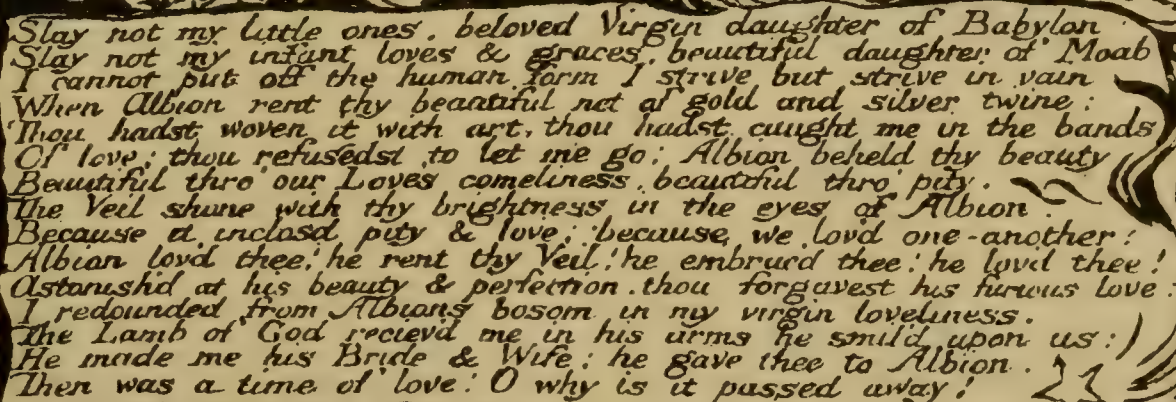 Slay not my little ones, beloved Virgin daughter of Babylon
Slay not my infant loves & graces, beautiful daughter of Moab
I cannot put off the human form I strive but strive in vain
When Albion rent thy beautiful net of gold and silver twine;
Thou hadst woven it with art, thou hadst caught me in the bands
Of love; thou refusedst to let me go: Albion beheld thy beauty
Beautiful thro' our Loves comeliness, beautiful thro' pity.
The Veil shone with thy brightness in the eyes of Albion.
Because it inclosd pity & love; because we lovd one-another!
Albion lovd thee! he rent thy Veil! he embracd thee! he lovd thee!
Astonish'd at his beauty & perfection, thou forgavest his furious love:
I redounded from Albions bosom in my virgin loveliness.
The Lamb of God recievd me in his arms he smil'd upon us:
He made me his Bride & Wife: he gave thee to Albion.
Then was a time of love: O why is it passed away!